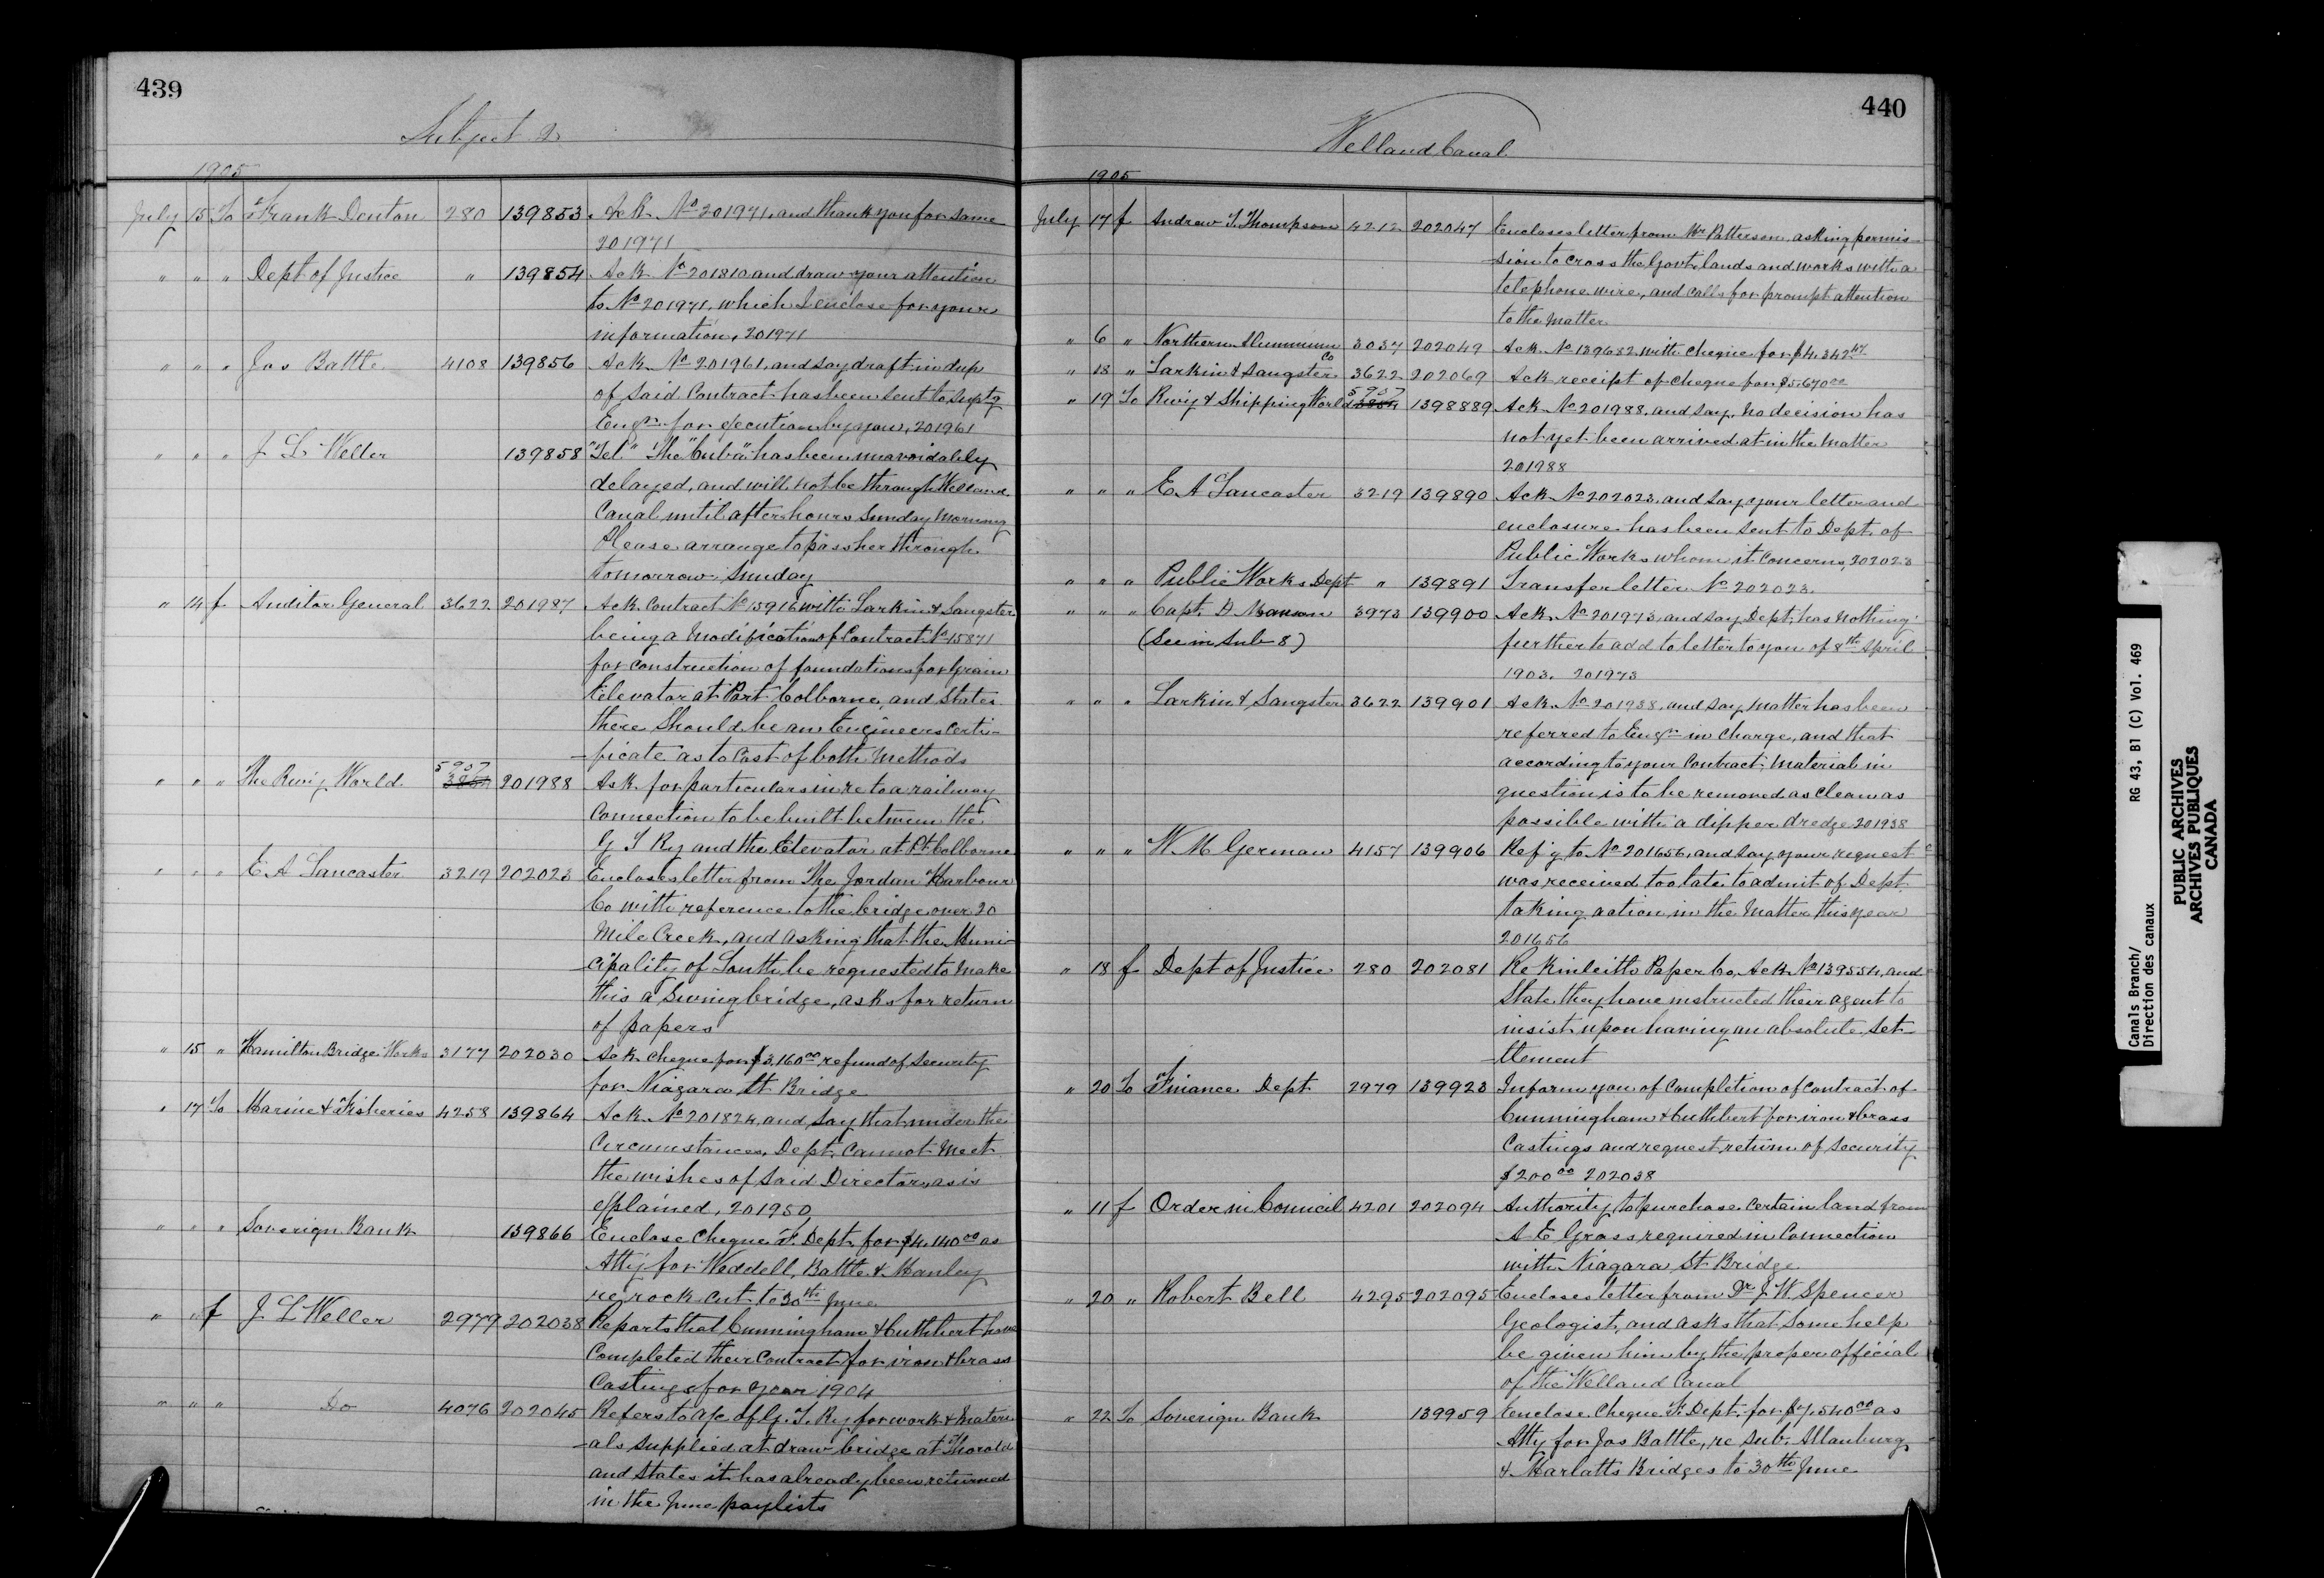 439
Subject 2
1905
July 15 To Frank Denton 280 139853 Ack No 201971, and thank you for same
201971
" " " Dept of Justice " 139854 Ack No 201810 and draw your attention
to No 201971, which I enclose for your
information, 201971
" " " Jas Battle 4108 139856 Ack No 201961, and say draft in dup
of said Contract has been sent to Suptg
Engr for execution by you, 201961
" " " J L Weller 139858 "Tel" The "Cuba" has been unavoidably
delayed, and will not be through Welland
Canal until after hours Sunday Morning
Please arrange to pass her through
tomorrow Sunday
" 14 f Auditor General 3622 201987 Ack Contract No 15916 with Larkin & Sangster
being a Modification of Contract No 15871
for construction of foundations for Grain
Elevator at Port Colborne, and States
there should be an Engineers Certi-
-ficate as to Cost of both Methods
" " " The Rwy World 5957 201988 Ask for particulars in re to a railway
Connection to be built between the
G T Ry and the Elevator at Pt Colborne
" " " E A Lancaster 3219 202023 Encloses letter from The Jordan Harbour
Co with reference to the bridge over 20
Mile Creek, and asking that the Muni-
-cipality of Louth be requested to make
this a Swing bridge, asks for return
of papers
" 15 " Hamilton Bridge Works 3177 202030 Ack cheque for $3,160 00 refund of Security
for Niagara St Bridge
" 17 To Marine & Fisheries 4258 139864 Ack No 201824, and say that under the
Circumstances, Dept. Cannot Meet
the wishes of said Director, as is
explained, 201950
" " " Soverign Bank 139866 Enclose Cheque F. Dept. for $4,140 00 as
Atty for Weddell, Battle & Manley
re rock cut to 30th June
" " f J L Weller 2979 202038 Reports that Cunningham & Cuthbert have
Completed their Contract for iron & brass
Castings for year 1904
" " " Do 4076 202045 Refers to a/c of G. T. Ry for work & Materi
-als supplied at draw bridge at Thorold
and States it has already been returned
in the June paylists
440
Welland Canal
1905
July 17 f Andrew T. Thompson 4212 202047 Encloses letter from Mr Patterson, asking permis-
-sion to cross the Govt lands and works with a
telephone wire, and calls for prompt attention
to the Matter
" 6 " Northern Aluminum Co 3037 202049 Ack No 139682 with Cheque for $4,342 47
" 18 " Larkin & Sangster 3622 202069 Ack receipt of cheque for $5,670 00
" 19 To Rwy & Shipping World 5957 1398889 Ack No 201988, and say, no decision has
not yet been arrived at in the Matter
201988
" " " E A Lancaster 3219 139890 Ack No 202023, and say your letter and
enclosure has been sent to Dept. of
Public Works whom it Concerns, 202023
" " " Public Works Dept " 139891 Transfer letter No 202023
" " " Capt. D Manson 3973 139900 Ack No 201973, and say Dept. has Nothing
(See in Sub 8) further to add to letter to you of 8th April
1903. 201973
" " " Larkin & Sangster 3622 139901 Ack No 201938, and say Matter has been
referred to Engr in Charge, and that
according to your Contract, Material in
question is to be removed as Clean as
possible with a dipper dredge 201938
" " " W M German 4157 139906 Refg to No 201656, and say your request
was received too late to admit of Dept
taking action in the Matter this year
201656
" 18 f Dept of Justice 280 202081 Re Kinleith Paper Co, Ack No 139554, and
State they have instructed their agent to
insist upon having an absolute Set-
-tlement
" 20 To Finance Dept 2979 139923 Inform you of Completion of Contract of
Cunningham & Cuthbert for iron & brass
Castings and request return of Security
$200 00 202038
" 11 f Order in Council 4201 202094 Authority to purchase certain land from
A E Gross required in Connection
with Niagara St Bridge
" 20 " Robert Bell 4295 202095 Encloses letter from Dr J W Spencer
Geologist, and asks that Some help
be given him by the proper official
of the Welland Canal
" 22 To Soverign Bank 139959 Enclose Cheque F. Dept. for $7,540 00 as
Atty for Jas Battle, re Sub. Allanburg
& Marlatts Bridges to 30th June
Canals Branch/ RG 43, B1 (C) Vol. 469
Direction des canaux
PUBLIC ARCHIVES
ARCHIVES PUBLIQUES
CANADA